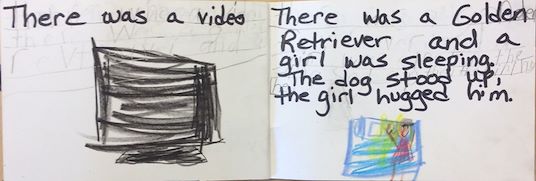 There was a video
There was a Golden
Retriever and a
girl was sleeping.
The dog stood up,
the girl hugged him.